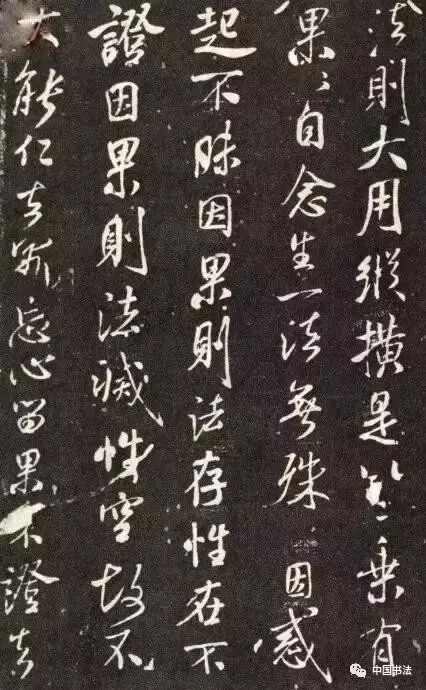 法則大用縱橫是二乘有
果〻自念生一法無殊〻因感
起不昧因果則法存性在不
證因果則法滅性空故不
大能仁忘心果不證
中国书法